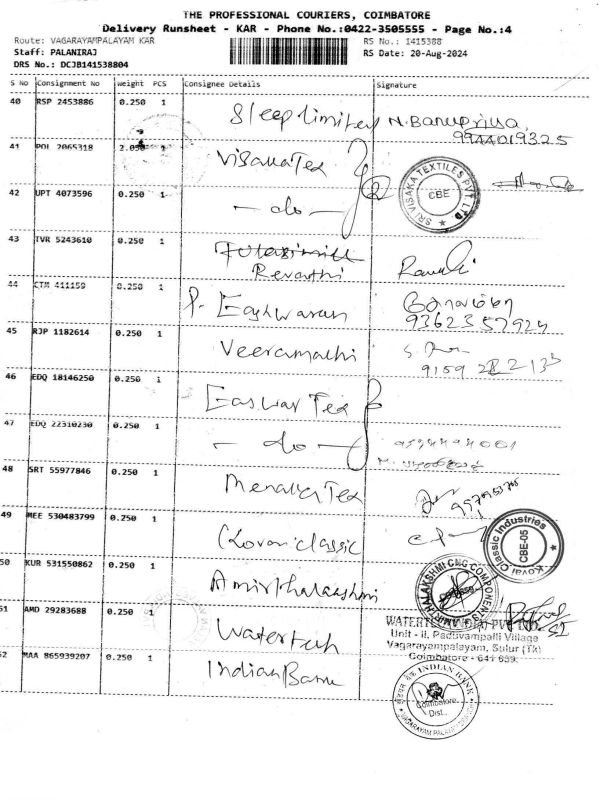 THE PROFESSIONAL COURIERS, COIMBATORE
Delivery Runsheet - KAR - Phone No.:0422-3505555 - Page No.:4
Route: VAGARAYAMPALAYAM KAR
RS No.: 1415388
Staff: PALANIRAJ
RS Date: 20-Aug-2024
DRS No.: DCJB141538804
S No Consignment No weight PCS Consignee Details Signature
40 RSP 2453886 0.250 1 Sleep limited N. Banupriya
9944019325
41 POL 2065318 1 Visaka Tex
SRI VISAKA TEXTILES PVT. LTD CBE
42 UPT 4073596 0.250 1 - do -
2
43 TVR 5243610 0.250 1
Revathi
44 CTM 411159 0.250 1 P. Eashwaran
9362352924
45 RJP 1182614 0.250 1 Veeramathi
46 EDQ 18146250 0.250 1 Easwar Tex
47 EDQ 22310230 0.250 1 - do -
48 SRT 55977846 0.250 1 Menaka Tex
49 MEE 530483799 0.250 1 Kovai classic
Koval Classic Industries CBE-05
50 KUR 531550862 0.250 1 Amirthalakshmi
AMIRTHALAKSHMI CNC COMPONENTS
51 AMD 29283688 0.250 1 Watertech
WATERTEC (INDIA) PVT LTD
Unit - II, Paduvampalli Village
Vagarayampalayam, Sulur (Tk)
Coimbatore - 641 659.
52 MAA 865939207 0.250 1 Indian Bank
INDIAN BANK
Coimbatore
Dist.
VAGARAYAM PALAYAM